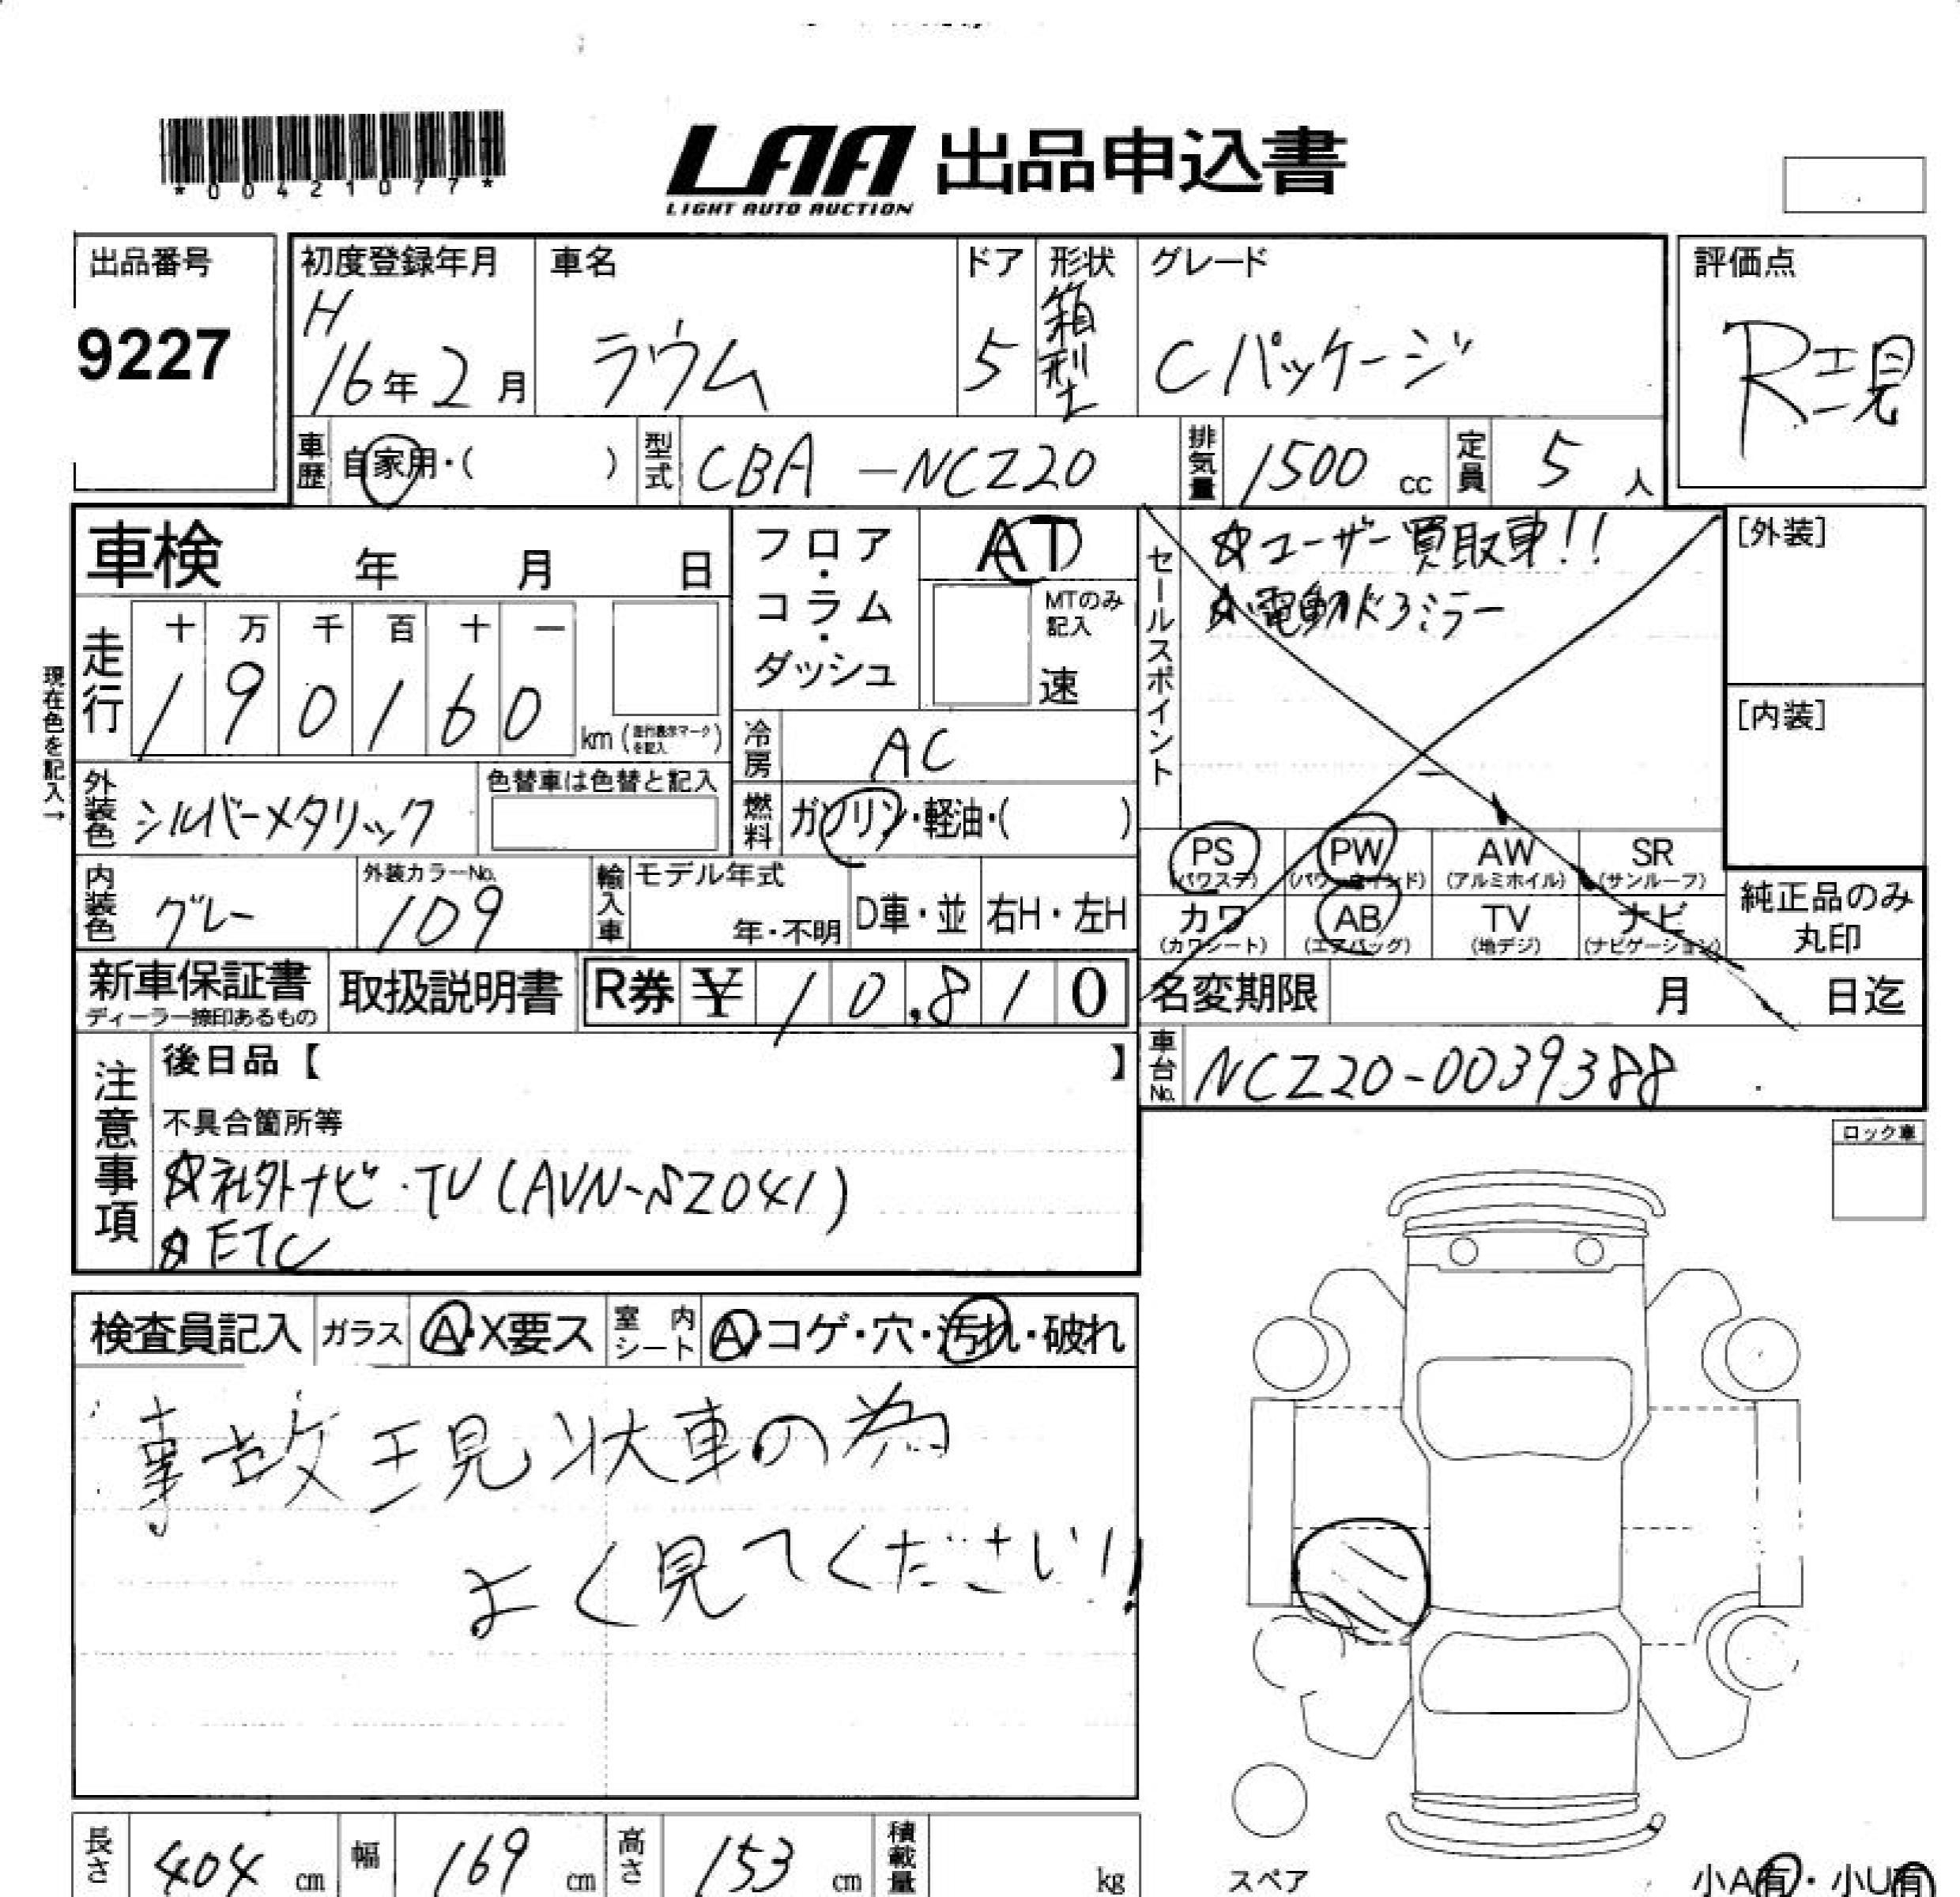 *00421077*
LAA 出品申込書
LIGHT AUTO AUCTION
出品番号
9227
初度登録年月
H
16年2月
車名
ラウム
ドア
5
形状
箱型
グレード
Cパッケージ
評価点
R現
車歴
自家用・( )
型式
CBA-NCZ20
排気量
1500 cc
定員
5 人
車検 年 月 日
フロア・コラム・ダッシュ
AT
MTのみ記入
速
セールスポイント
☆ユーザー買取車!!
☆電動ドアミラー
[外装]
[内装]
現在色を記入→
走行
十 万 千 百 十 一
1 9 0 1 6 0
km (走行表示マークを記入)
冷房
AC
外装色
シルバーメタリック
色替車は色替と記入
燃料
ガソリン・軽油・( )
PS (パワステ)
PW (パワーウインド)
AW (アルミホイル)
SR (サンルーフ)
カワ (カワシート)
AB (エアバッグ)
TV (地デジ)
ナビ (ナビゲーション)
純正品のみ丸印
内装色
グレー
外装カラーNo.
109
輸入車
モデル年式
年・不明
D車・並
右H・左H
新車保証書
ディーラー捺印あるもの
取扱説明書
R券 ¥ 10,810
名変期限 月 日迄
車台No.
NCZ20-0039388
注意事項
後日品【 】
不具合箇所等
☆社外ナビ・TV(AVN-SZ04i)
☆ETC
ロック車
検査員記入
ガラス
A・X要ス
室内シート
A・コゲ・穴・汚れ・破れ
事故現状車の為
よく見てください!!
長さ
404 cm
幅
169 cm
高さ
153 cm
積載量
kg
スペア
小A有・小U有